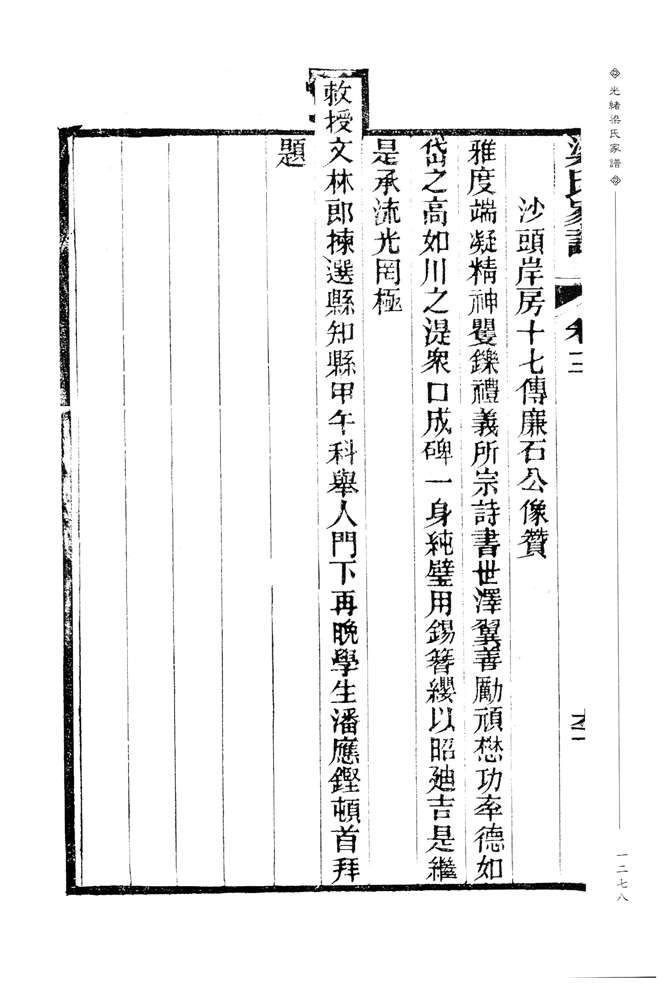 光緒梁氏家譜
一二七八
梁氏家譜 卷三
沙頭岸房十七傳廉石公像贊
雅度端凝精神矍鑠禮義所宗詩書世澤翼善勵頑懋功率德如
岱之高如川之湜衆口成碑一身純璧用錫簪纓以昭廸吉是繼
是承流光罔極
敕授文林郎揀選縣知縣甲午科舉人門下再晚學生潘應鏗頓首拜
題